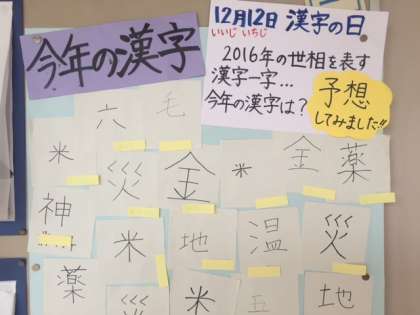 今年の漢字
12月12日 漢字の日
いいじ いちじ
2016年の世相を表す
漢字一字...
今年の漢字は?
予想
してみました!!
六 毛
米 災 金 米 金 薬
神 米 地 温 災
薬 災 米 五 地